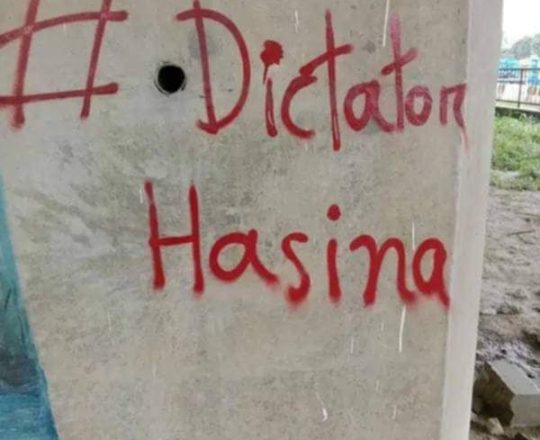 # Dictator
Hasina